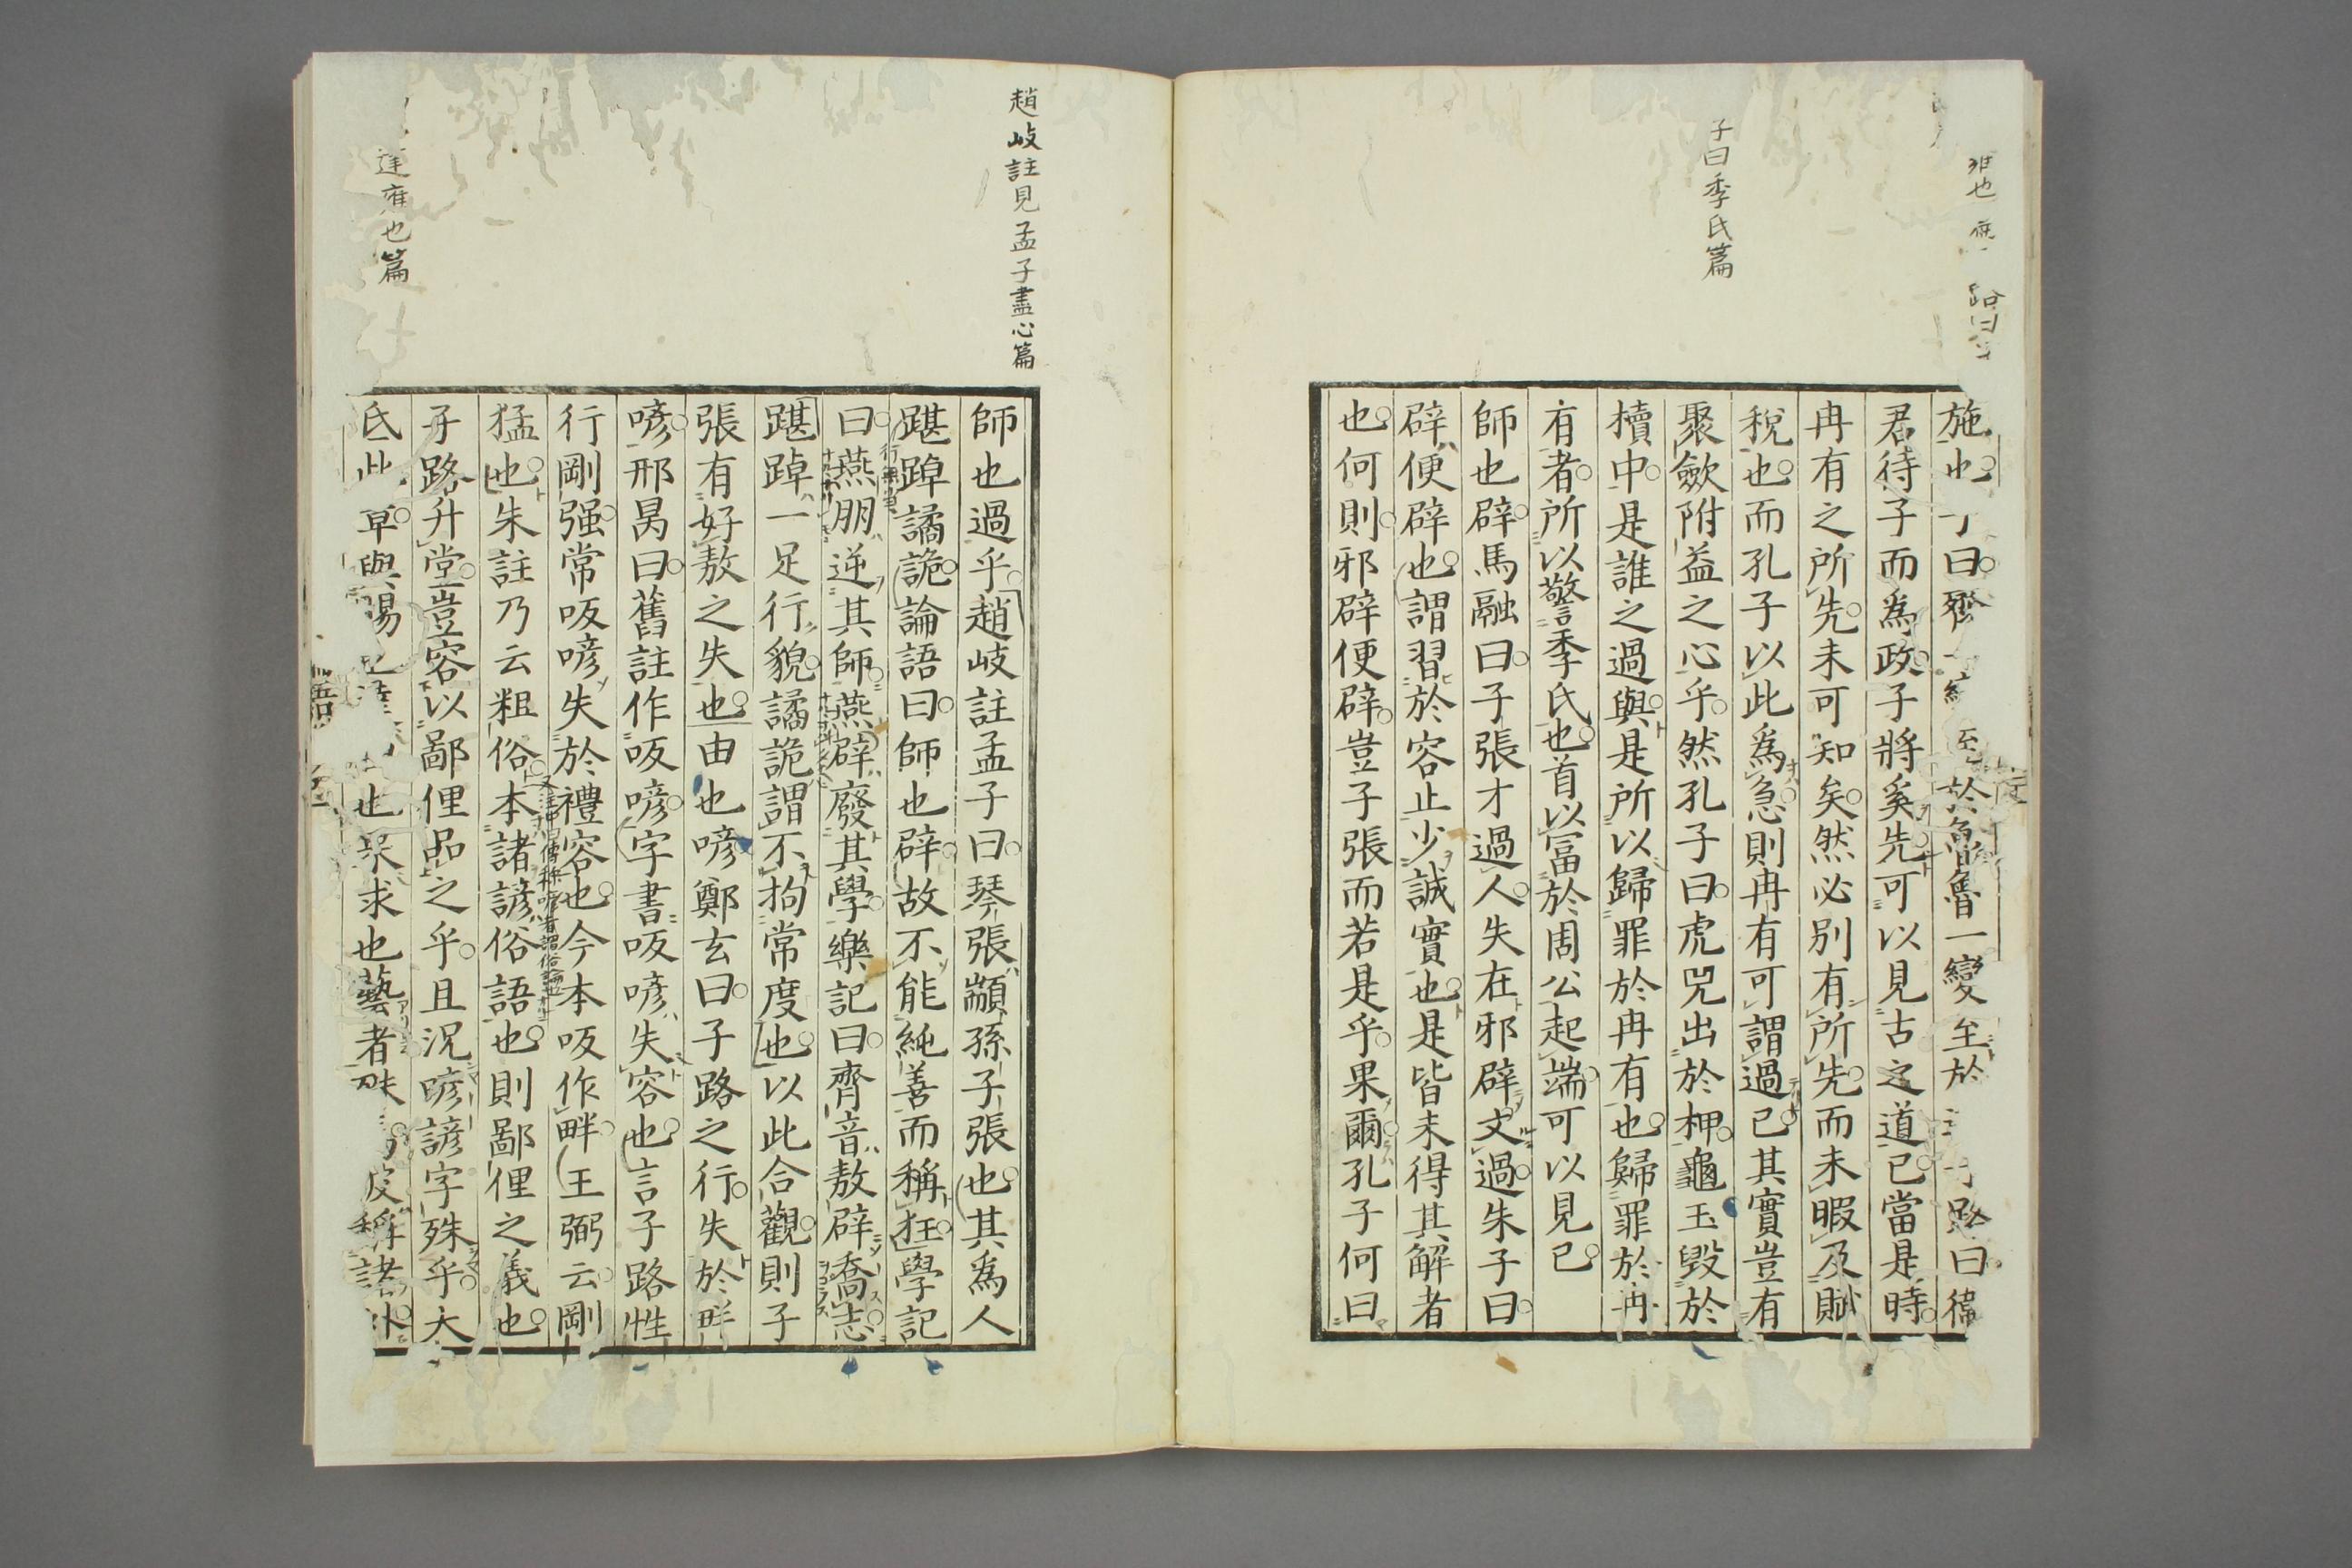 子曰季氏篇
施也 曰齊 於魯魯一變至於 路曰
君待子而為政子將奚先可以見古之道已當是時
冉有之所先未可知矣然必別有所先而未暇及賦
稅也而孔子以此為急則冉有可謂過已其實豈有
聚斂附益之心乎然孔子曰虎兕出於柙龜玉毀於
櫝中是誰之過與是所以歸罪於冉有也歸罪於冉
有者所以警季氏也首以富於周公起端可以見已
師也辟馬融曰子張才過人失在邪辟文過朱子曰
辟便辟也謂習於容止少誠實也是皆未得其解者
也何則邪辟便辟豈子張而若是乎果爾孔子何曰
趙岐註見孟子盡心篇
師也過乎趙岐註孟子曰琴張顓孫子張也其為人
踸踔譎詭論語曰師也辟故不能純善而稱狂學記
曰燕朋逆其師燕辟廢其學樂記曰齊音敖辟喬志
踸踔一足行貌譎詭謂不拘常度也以此合觀則子
張有好敖之失也由也喭鄭玄曰子路之行失於畔
喭邢昺曰舊註作吸喭字書吸喭失容也言子路性
行剛强常吸喭失於禮容也今本吸作畔王弼云剛
猛也朱註乃云粗俗本諸諺俗語也則鄙俚之義也
子路升堂豈容以鄙俚品之乎且況喭諺字殊乎大
氐此章與 也求也藝者 稱諸
雍也篇